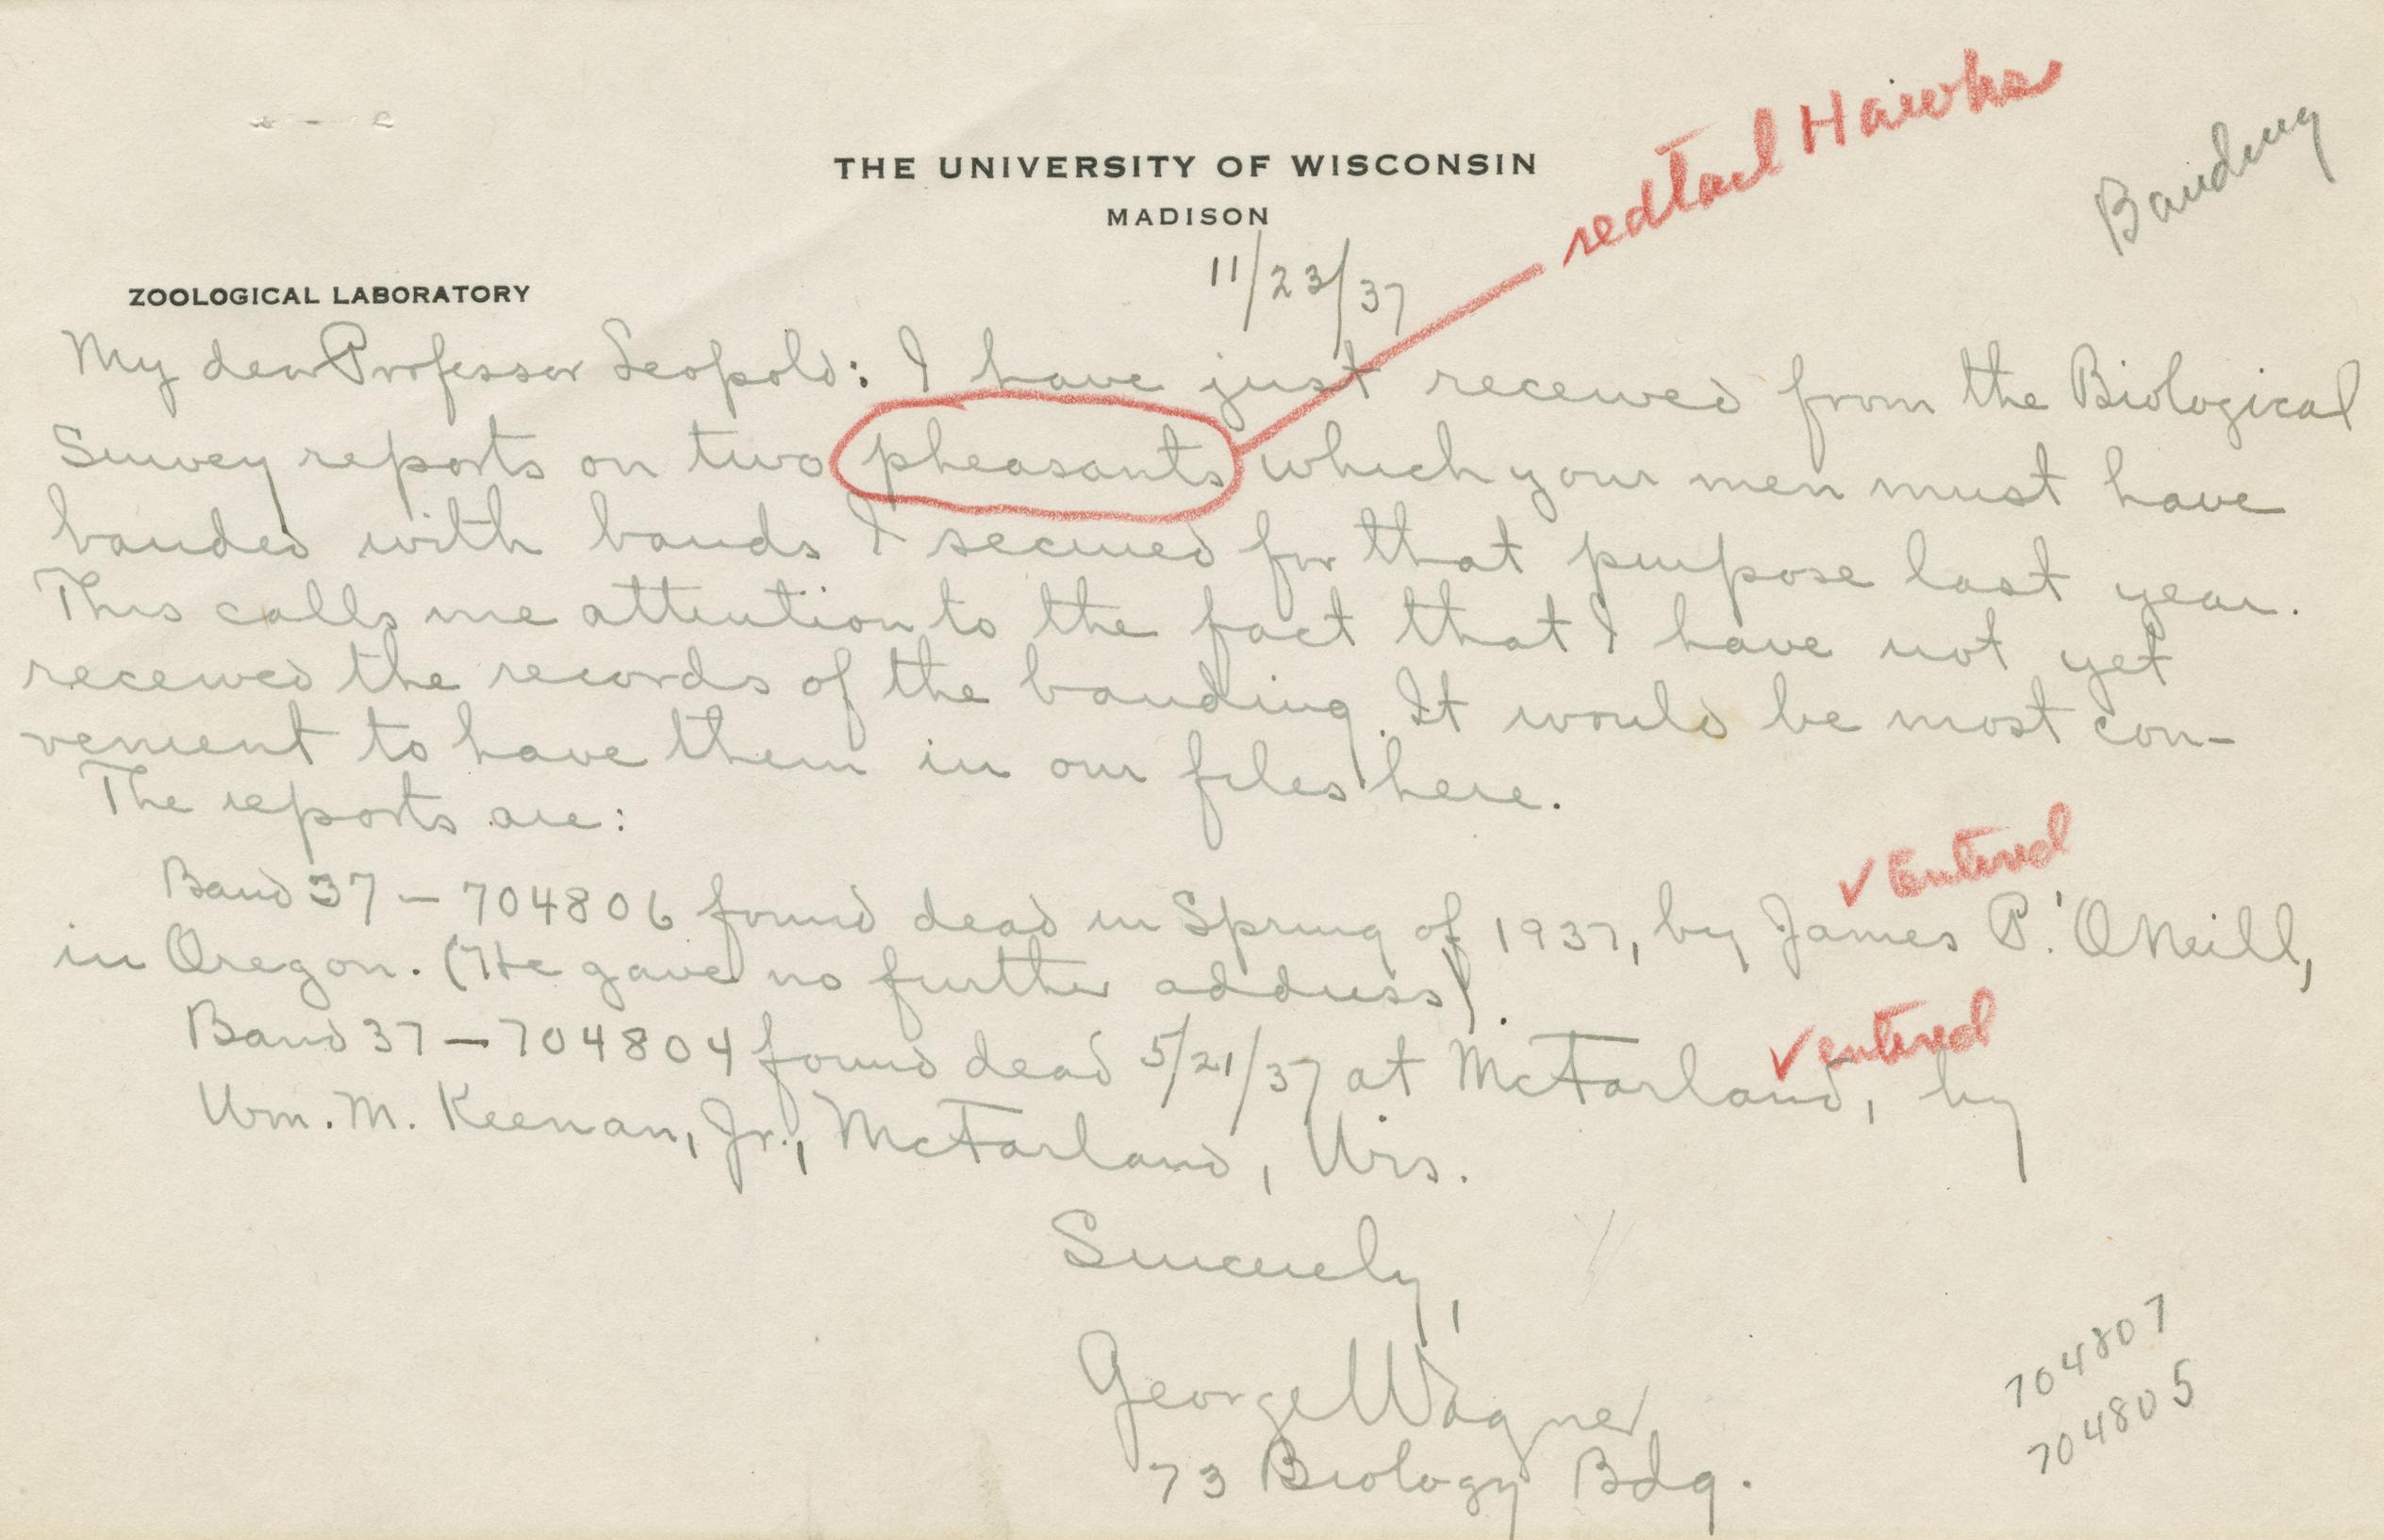 redtail Hawks
Banding
THE UNIVERSITY OF WISCONSIN
MADISON
11/23/37
ZOOLOGICAL LABORATORY
My dear Professor Leopold: I have just received from the Biological
Survey reports on two pheasants which your men must have
banded with bands I secured for that purpose last year.
This calls me attention to the fact that I have not yet
received the records of the banding. It would be most con-
venient to have them in our files here.
The reports are:
✓ Entered
Band 37-704806 found dead in Spring of 1937, by James P. O'Neill,
in Oregon. (He gave no further address).
✓ entered
Band 37-704804 found dead 5/21/37 at McFarland, by
Wm. M. Keenan, Jr., McFarland, Wis.
Sincerely,
George Wagner
73 Biology Bdg.
704807
704805